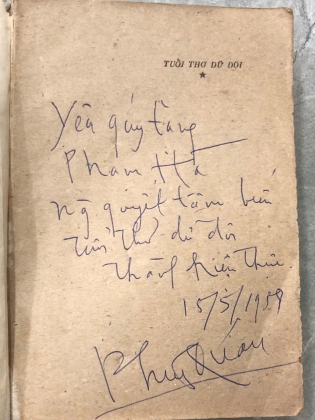 TUỔI THƠ DỮ DỘI
Yêu quý tặng
Phạm Hà
ng quyết tâm biến
tuổi thơ dữ dội
thành hiện thực
15/5/1989
Phùng Quán